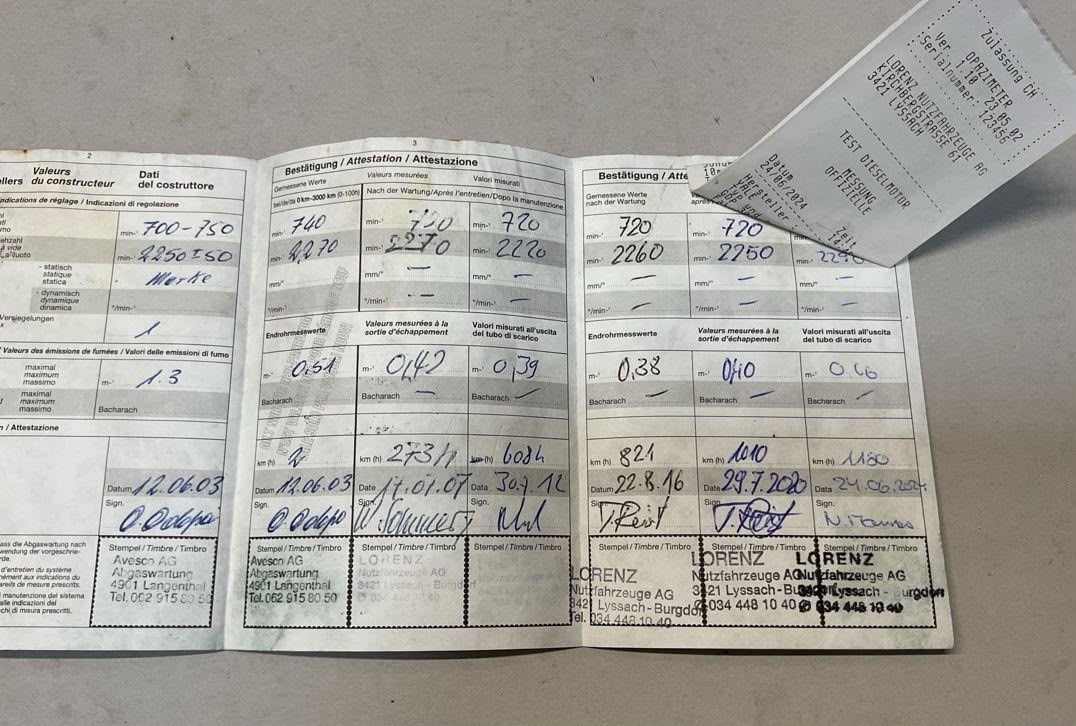 2
Valeurs
du constructeur
Dati
del costruttore
ndications de réglage / Indicazioni di regolazione
min-¹ 700-750
min-¹ 2250±50
- statisch
statique
statica
Marke
- dynamisch
dynamique
dinamica
°/min-¹
Versiegelungen
1
Valeurs des émissions de fumées / Valori delle emissioni di fumo
maximal
maximum
massimo
m-¹ 1.3
maximal
maximum
massimo
Bacharach
n / Attestazione
Datum 12.06.03
Sign.
Stempel / Timbre / Timbro
Avesco AG
Abgaswartung
4901 Langenthal
Tel. 062 915 80 50
3
Bestätigung / Attestation / Attestazione
Gemessene Werte
Valeurs mesurées
Valori misurati
bei/de/da 0 km-3000 km (0-100h)
Nach der Wartung/Après l'entretien/Dopo la manutenzione
740 min-¹ 730 min-¹ 720
2270 min-¹ 2270 min-¹ 2220
mm/° — mm/° —
°/min-¹ — °/min-¹ —
Endrohrmesswerte
Valeurs mesurées à la
sortie d'échappement
Valori misurati all'uscita
del tubo di scarico
0,51 m-¹ 0,42 m-¹ 0,39
Bacharach Bacharach — Bacharach —
km (h) 273h km (h) 608h
Datum 12.06.03 Date 17.01.07 Data 30.7.12
Sign. Sign. Sign.
Stempel / Timbre / Timbro Stempel / Timbre / Timbro Stempel / Timbre / Timbro
Avesco AG
Abgaswartung
4901 Langenthal
Tel. 062 915 80 50
LORENZ
Nutzfahrzeuge AG
3421 Lyssach - Burgdorf
Bestätigung / Atte
Gemessene Werte
nach der Wartung
720 min-¹ 720
2260 min-¹ 2250 min-¹
mm/° — mm/° — mm/°
°/min-¹ — °/min-¹ — °/min-¹ —
Endrohrmesswerte
Valeurs mesurées à la
sortie d'échappement
Valori misurati all'uscita
del tubo di scarico
m-¹ 0,38 m-¹ 0,40 m-¹
Bacharach — Bacharach — Bacharach —
km (h) 821 km (h) 1010 km (h) 1180
Datum 22.8.16 Date 29.7.2020 Data 24.06.2024
Sign. Sign. Sign.
Stempel / Timbre / Timbro Stempel / Timbre / Timbro Stempel / Timbre / Timbro
LORENZ
Nutzfahrzeuge AG
3421 Lyssach-Burgdorf
Tel. 034 448 10 40
LORENZ
Nutzfahrzeuge AG
3421 Lyssach - Burgdorf
034 448 10 40
LORENZ
Nutzfahrzeuge AG
Lyssach - Burgdorf
034 448 10 40
Zulassung CH
OPAZIMETER
Ver. 1.10 23.05.02
Serialnummer: 123456
LORENZ NUTZFAHRZEUGE AG
KIRCHBERGSTRASSE 61
3421 LYSSACH
TEST DIESELMOTOR
MESSUNG
OFFIZIELLE
Datum Zeit
24/06/2024
Hersteller
YALE